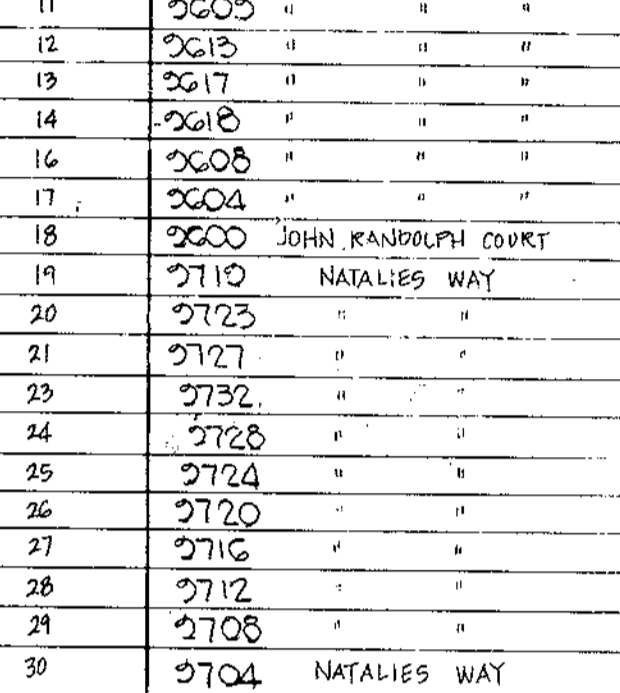 11 9609 " " "
12 9613 " " "
13 9617 " " "
14 9618 " " "
16 9608 " " "
17 9604 " " "
18 9600 JOHN RANDOLPH COURT
19 9719 NATALIES WAY
20 9723 " "
21 9727 " "
23 9732 " "
24 9728 " "
25 9724 " "
26 9720 " "
27 9716 " "
28 9712 " "
29 9708 " "
30 9704 NATALIES WAY